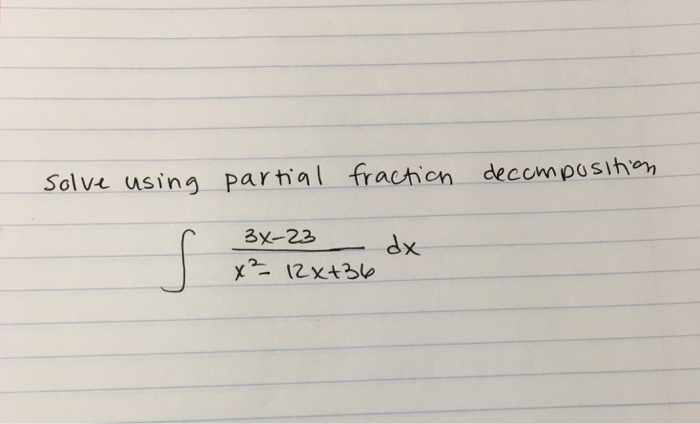 Solve using partial fraction decomposition
∫ 3x-23 / x² - 12x+36 dx